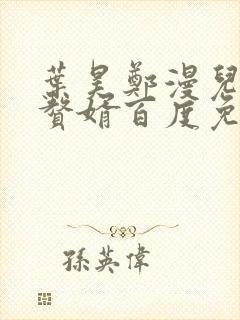 葉昊鄭漫兒
贅婿百度免
孫英偉